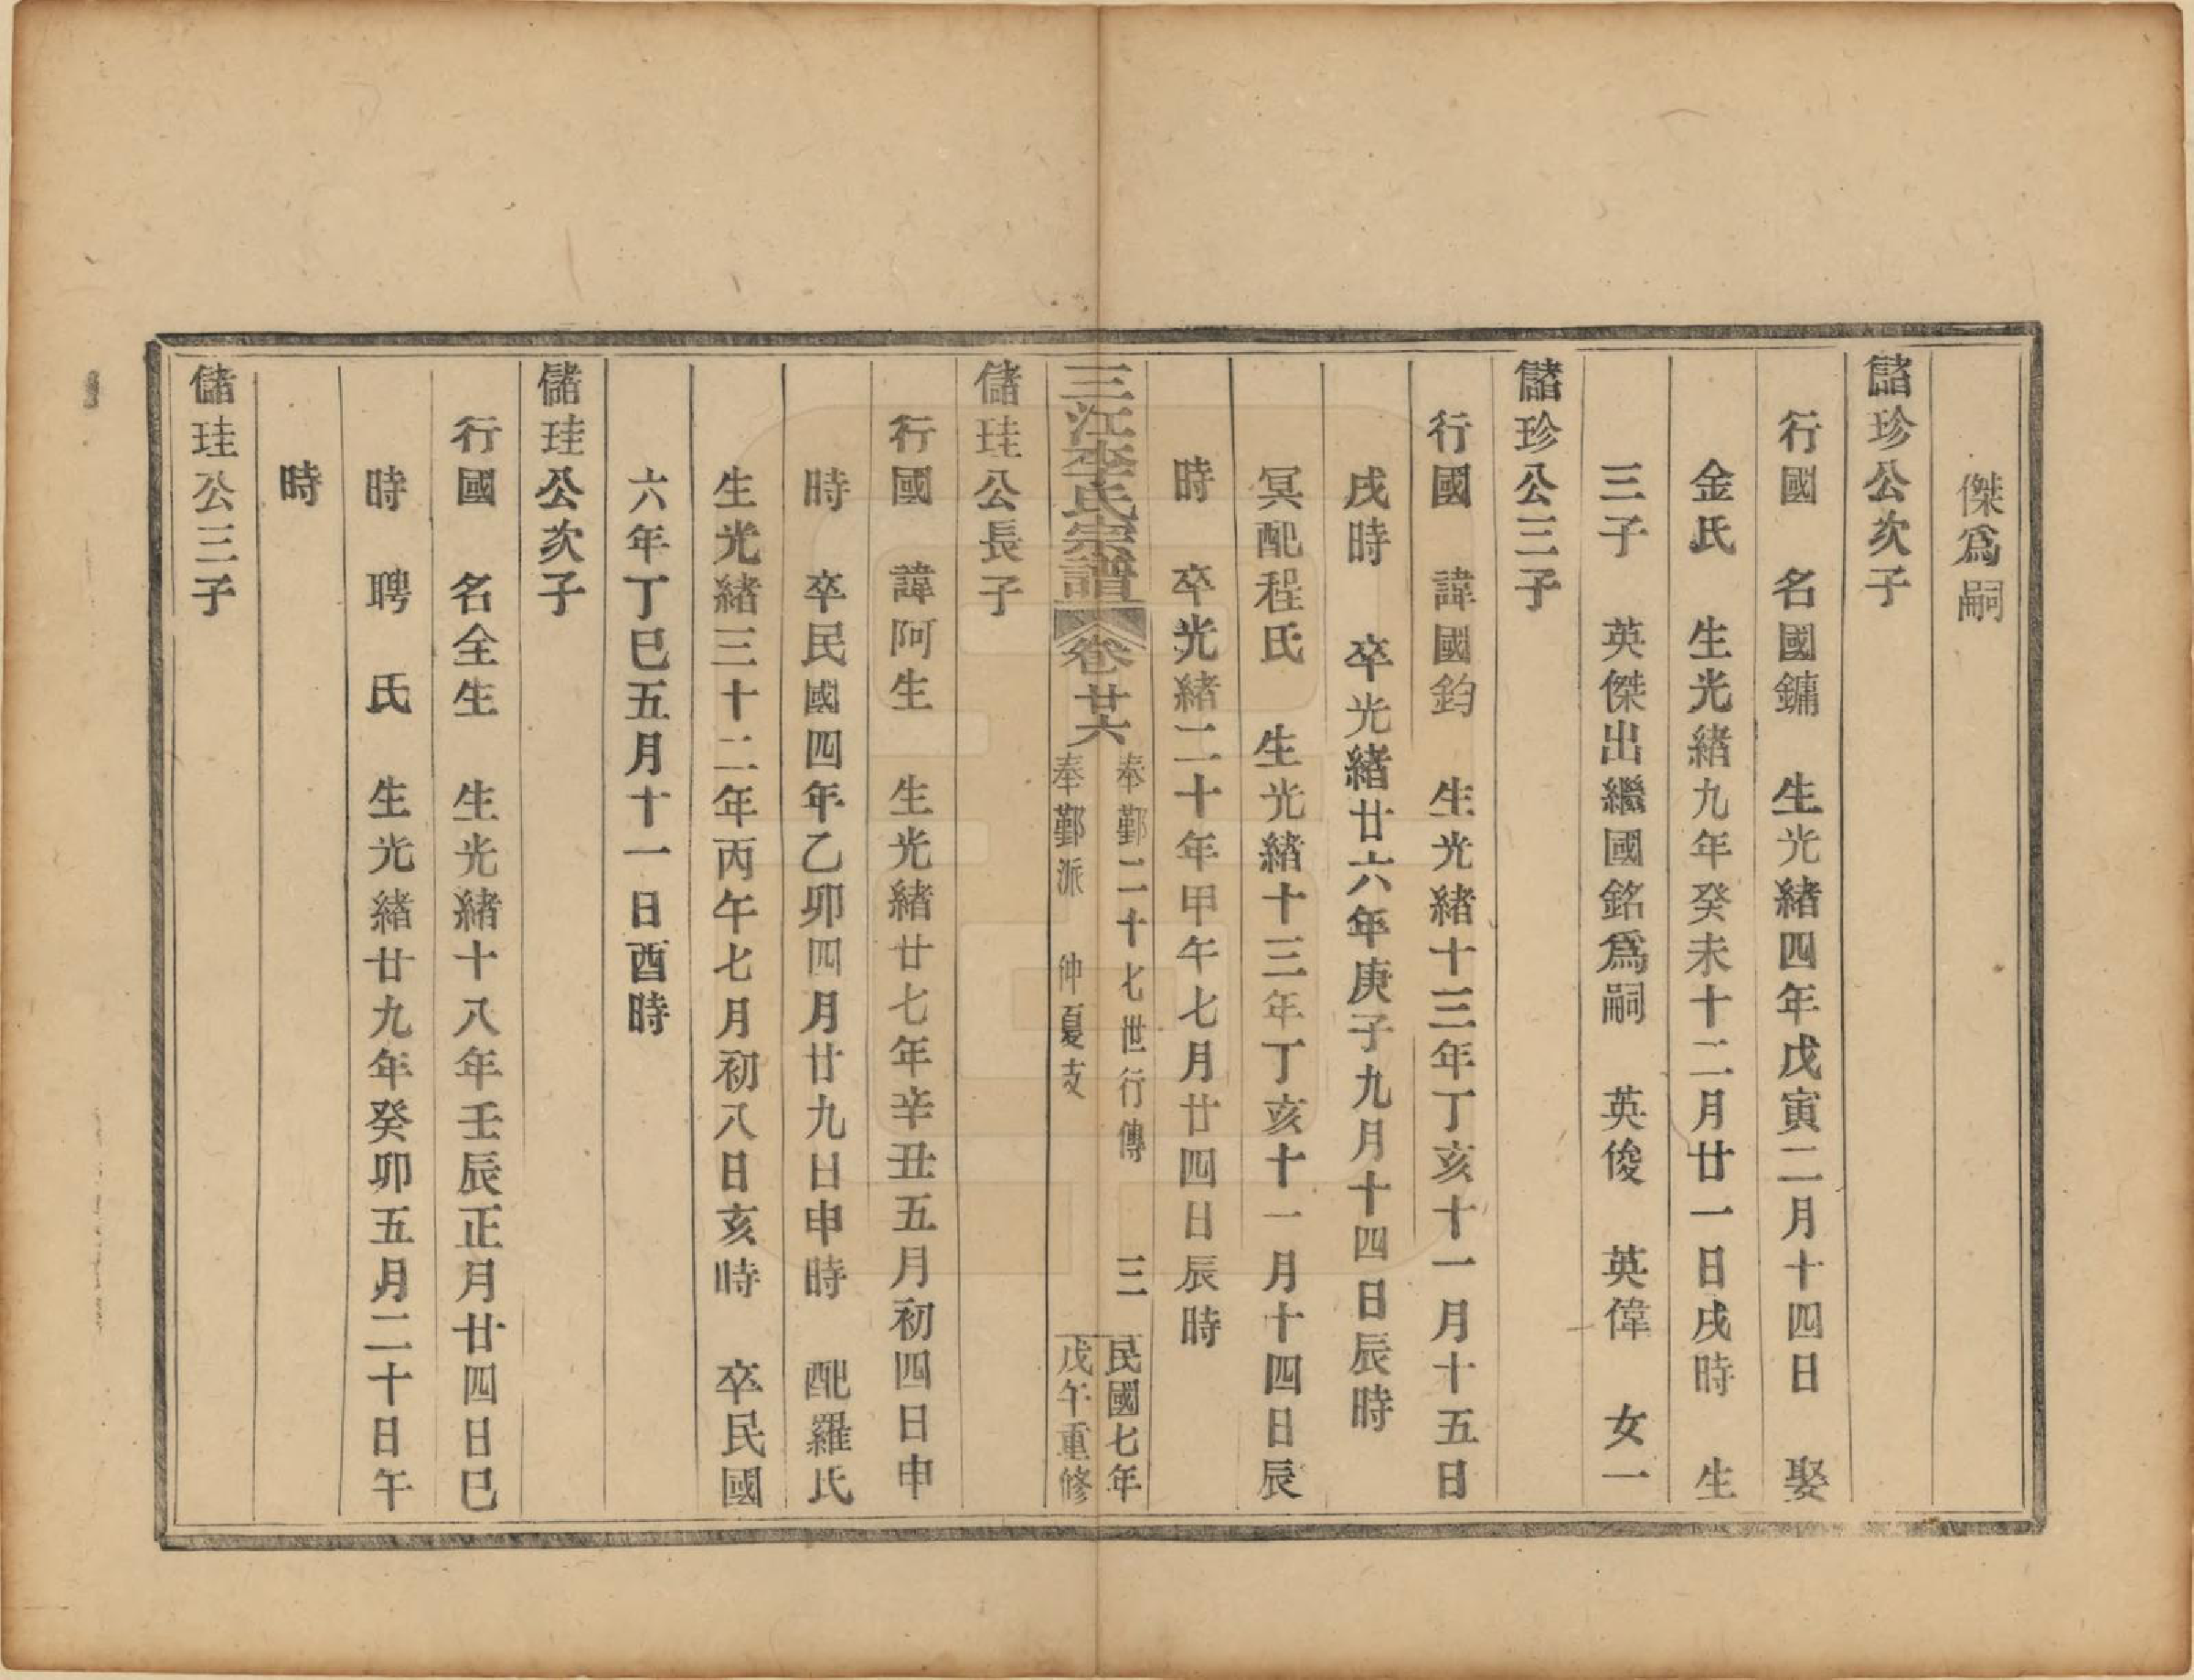 傑爲嗣
儲珍公次子
行國　名國鏞　生光緒四年戊寅二月十四日　娶
金氏　生光緒九年癸未十二月廿一日戌時　生
三子　英傑出繼國銘爲嗣　英俊　英偉　女一
儲珍公三子
行國　諱國鈞　生光緒十三年丁亥十一月十五日
戌時　卒光緒廿六年庚子九月十四日辰時
冥配程氏　生光緒十三年丁亥十一月十四日辰
時　卒光緒二十年甲午七月廿四日辰時
三江李氏宗譜　卷廿六
奉鄞二十七世行傳　三
奉鄞派　仲夏支
民國七年
戊午重修
儲珪公長子
行國　諱阿生　生光緒廿七年辛丑五月初四日申
時　卒民國四年乙卯四月廿九日申時　配羅氏
生光緒三十二年丙午七月初八日亥時　卒民國
六年丁巳五月十一日酉時
儲珪公次子
行國　名全生　生光緒十八年壬辰正月廿四日巳
時　聘　氏　生光緒廿九年癸卯五月二十日午
時
儲珪公三子